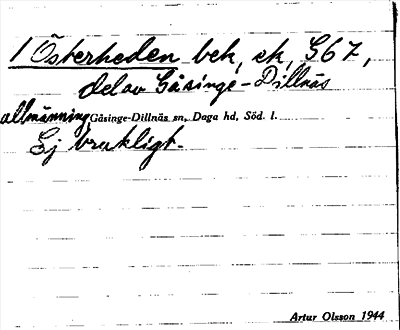 1 Österheden bek, ek, G67,
del av Gåsinge-Dillnäs
allmänning Gåsinge-Dillnäs sn, Daga hd, Söd. l.
Ej brukligt.
Artur Olsson 1944